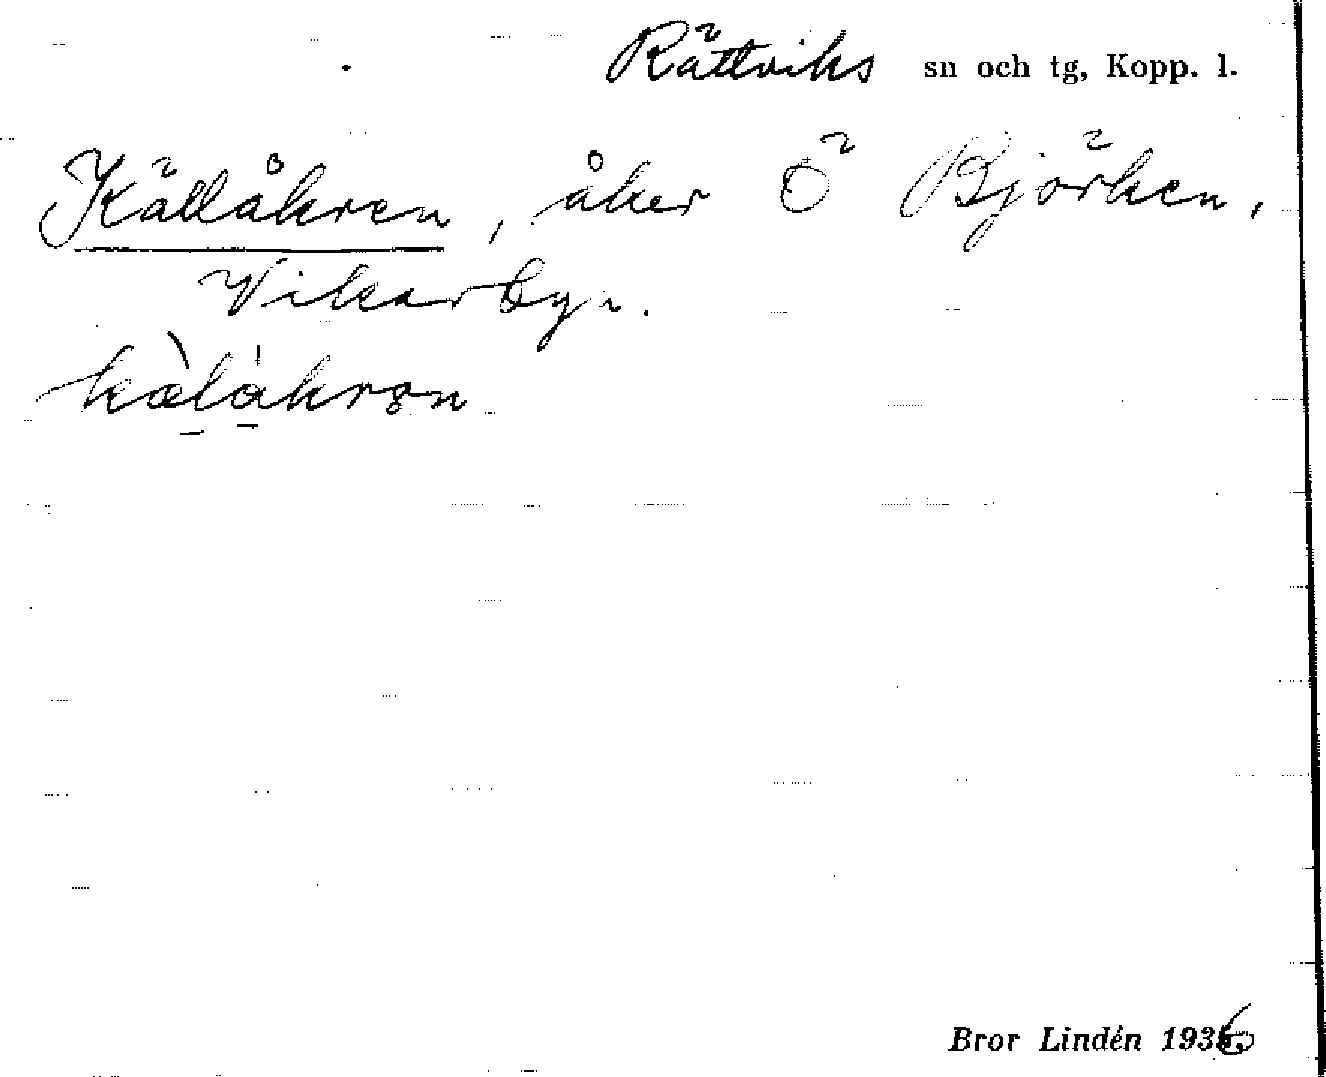 Rättviks sn och tg, Kopp. l.
Källåkren, åker Ö Björken,
Vikarbyn.
kæ̀låkrən
Bror Lindén 1936